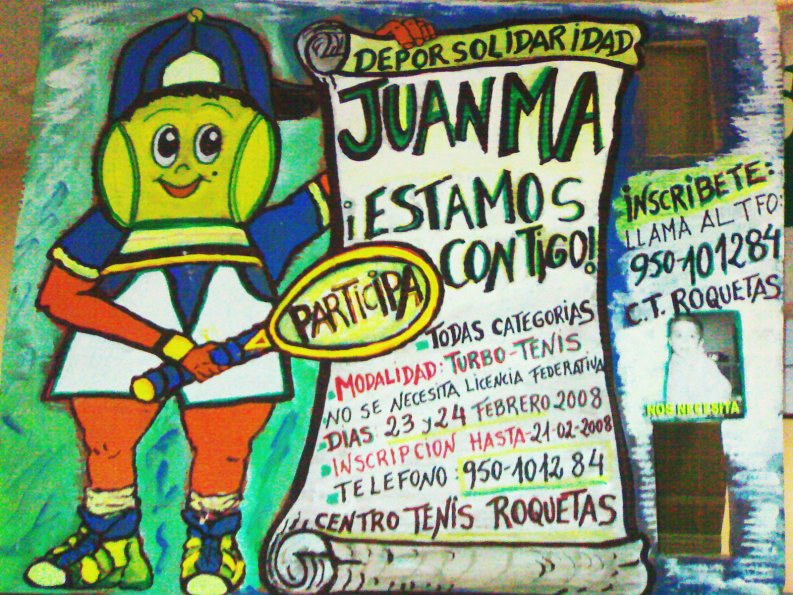 DEPORSOLIDARIDAD
JUANMA
¡ESTAMOS
CONTIGO!
PARTICIPA
TODAS CATEGORIAS
MODALIDAD: TURBO-TENIS
NO SE NECESITA LICENCIA FEDERATIVA
DIAS 23 y 24 FEBRERO 2008
INSCRIPCION HASTA-21-02-2008
TELEFONO: 950-101284
CENTRO TENIS ROQUETAS
INSCRIBETE:
LLAMA AL TFO:
950-101284
C.T. ROQUETAS
NOS NECESITA